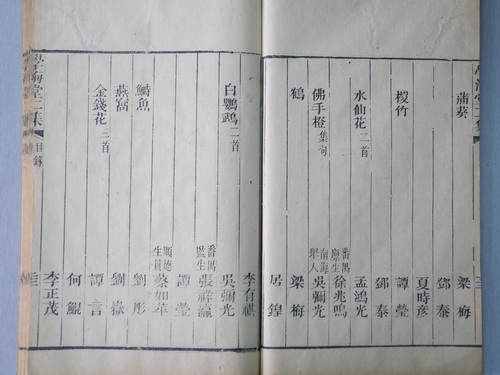 蒲葵 梁梅
鄧泰
夏時彥
椶竹 譚瑩
鄧泰
水仙花二首 孟鴻光
番禺廩生 徐兆鳴
佛手橙集句 南海舉人 吳彌光
鶴 梁梅
居鍠
李有祺
白鸚鵡二首 吳彌光
番禺監生 張祥瀛
譚瑩
順德生員 蔡如苹
鰣魚 劉彤
燕窩 劉嶽
金錢花二首 譚言
何鯤
李正茂
學海堂二集 目錄